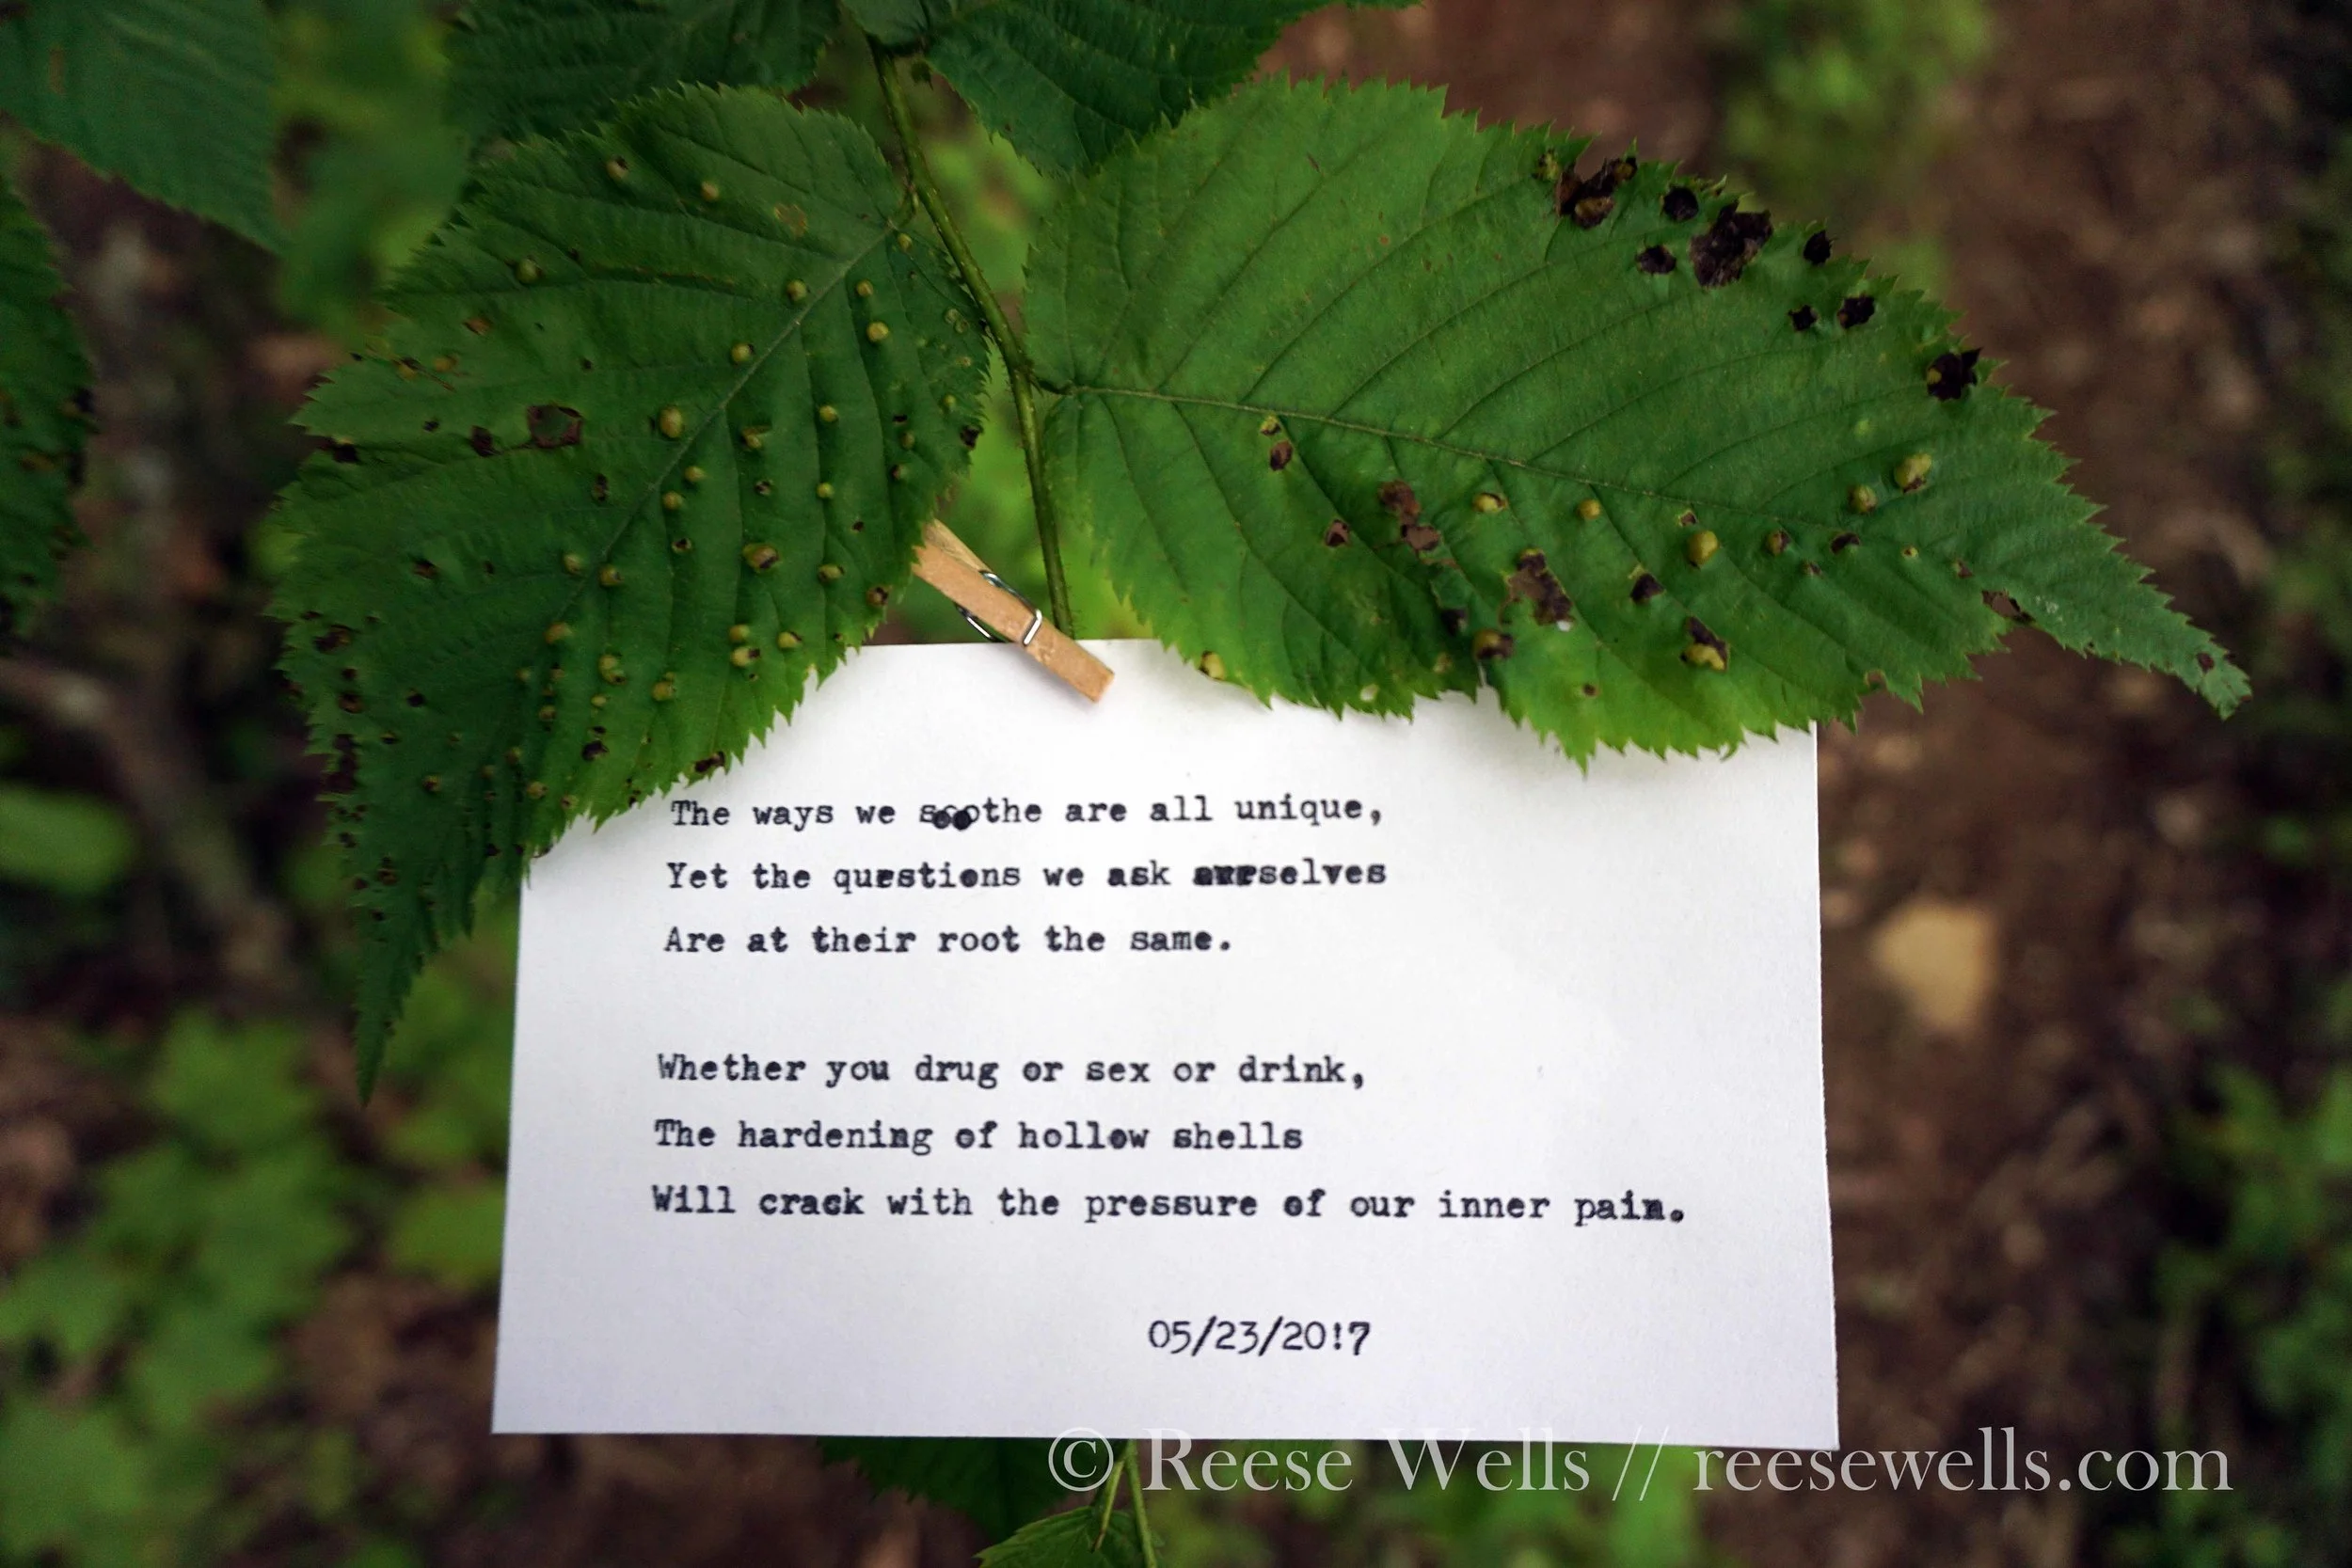 The ways we soothe are all unique,
Yet the questions we ask ourselves
Are at their root the same.
Whether you drug or sex or drink,
The hardening of hollow shells
Will crack with the pressure of our inner pain.
05/23/20!7
© Reese Wells // reesewells.com